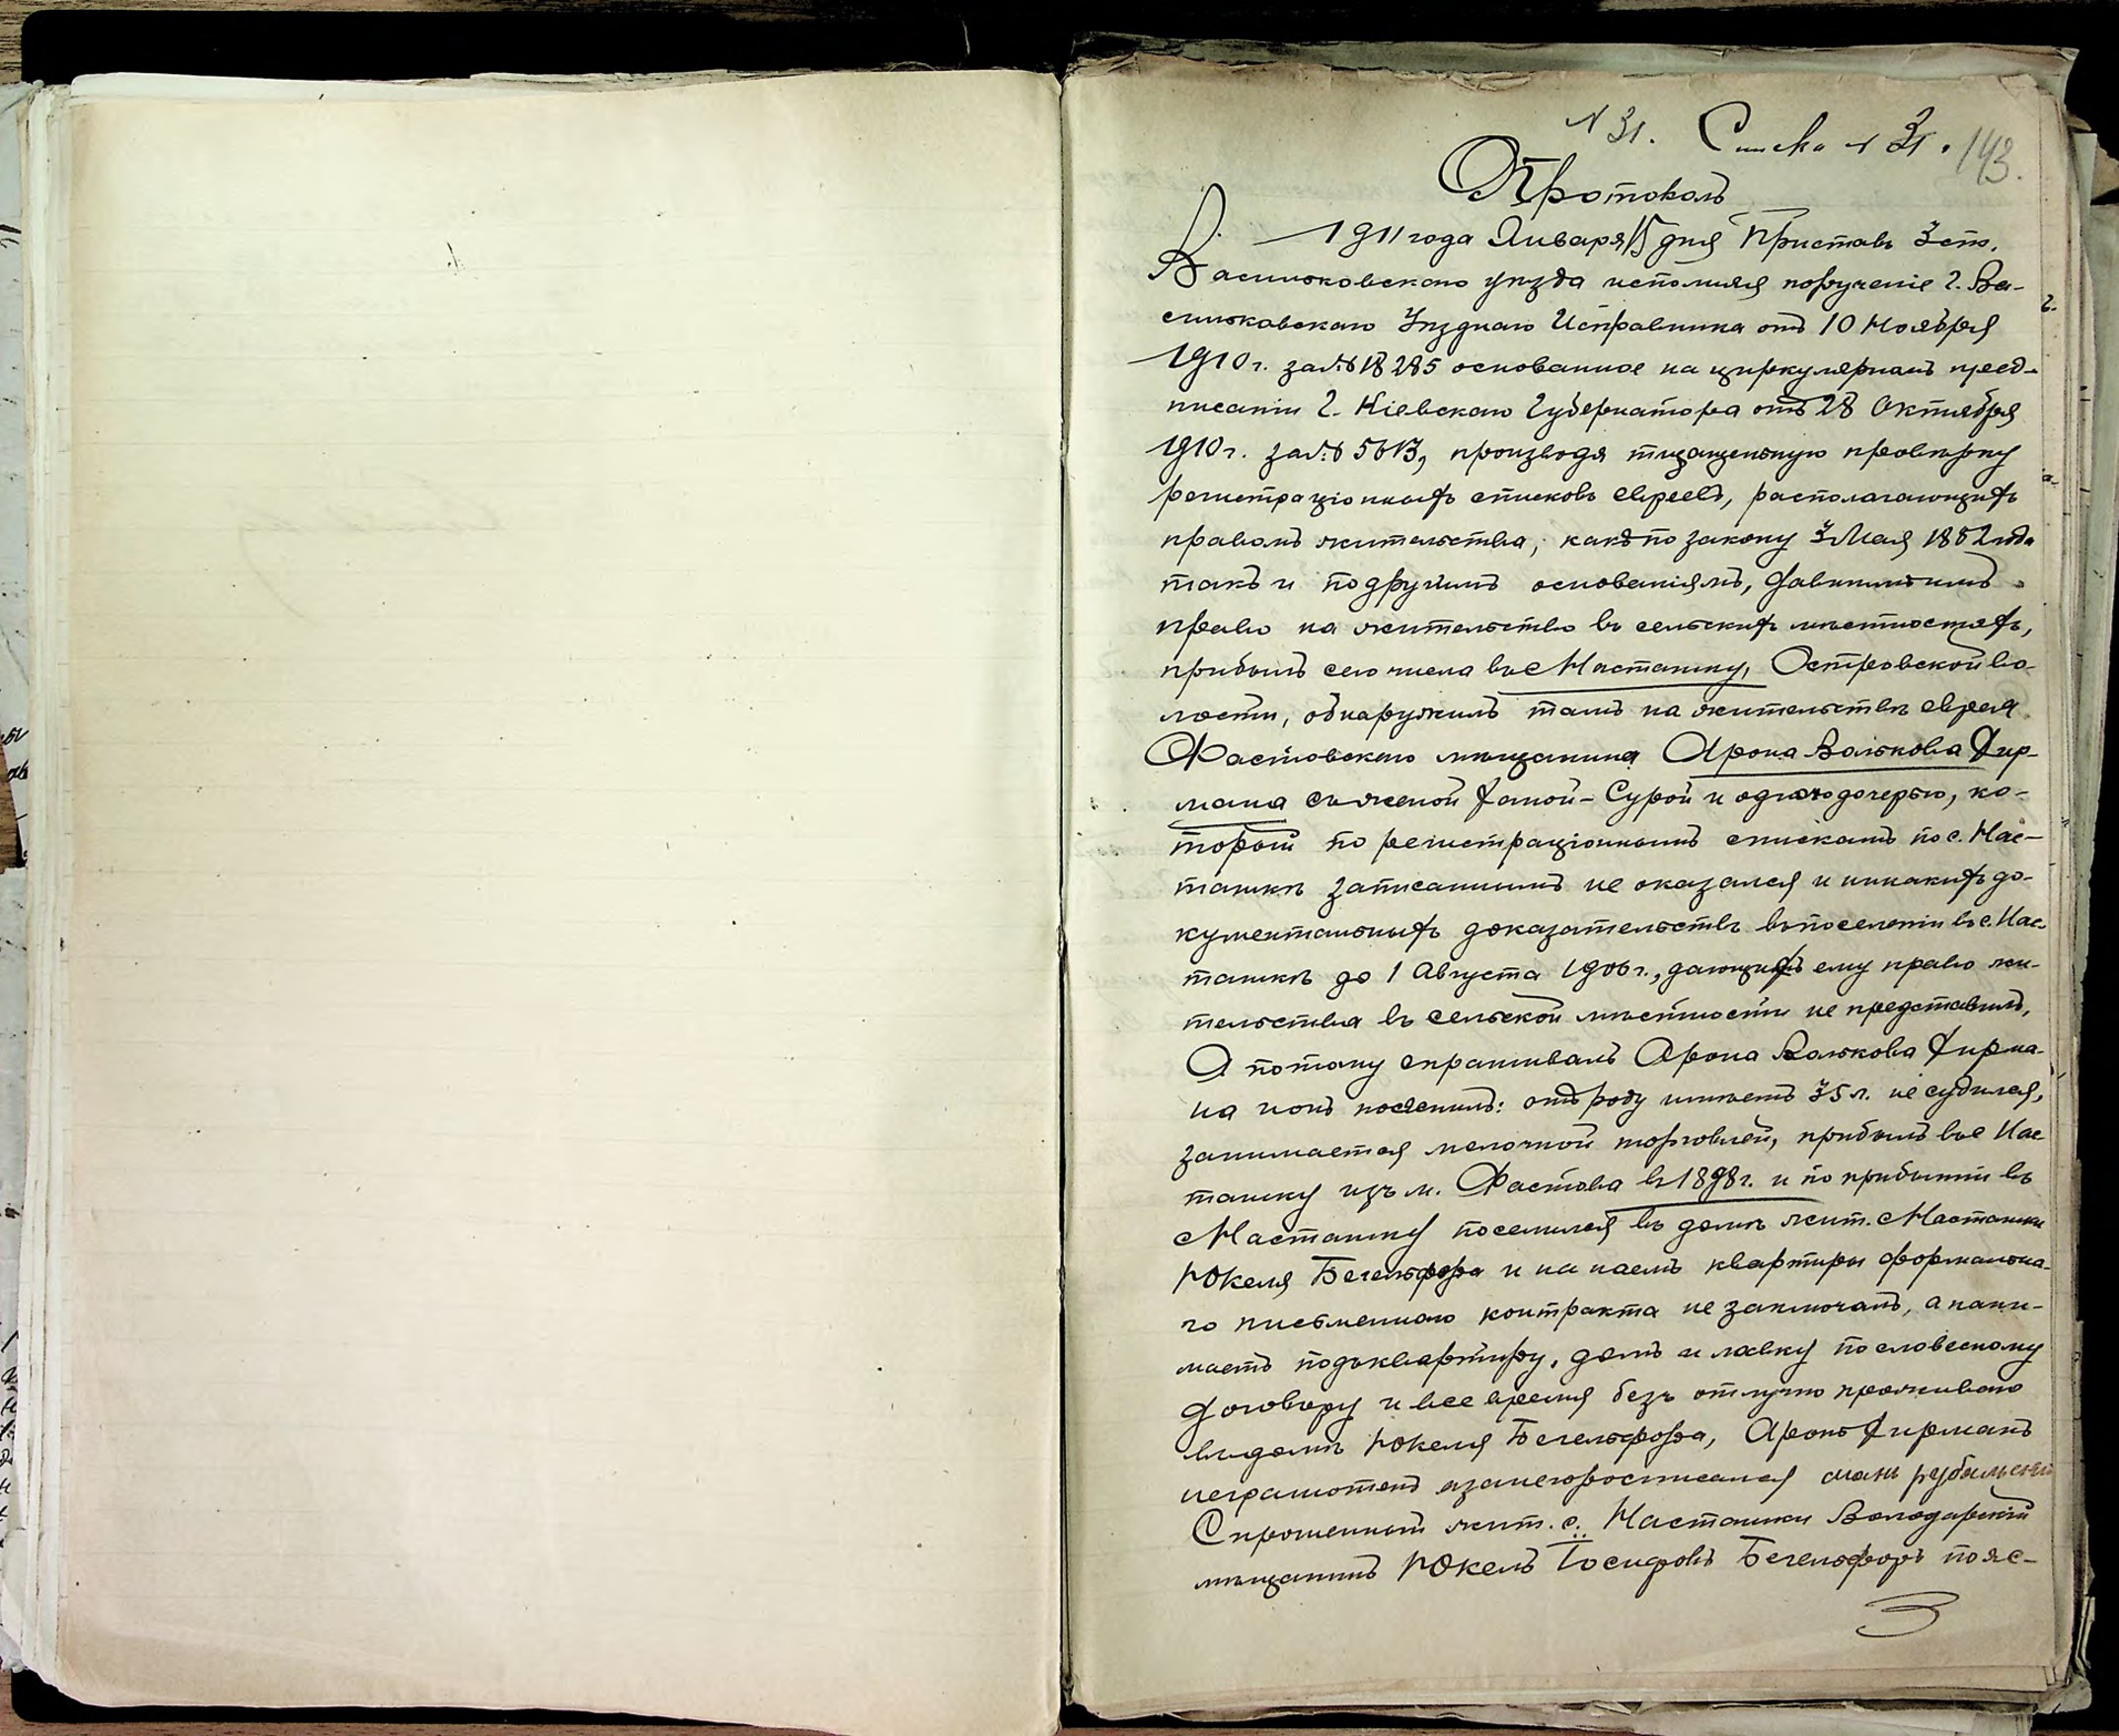 N 31. Списка N 31. 143.
Протоколъ
1911 года Января 15 дня Приставъ 3 ст.
Васильковскаго уѣзда исполняя порученіе г. Ва-
сильковскаго Уѣзднаго Исправника отъ 10 Ноября
1910 г. за № 18285 основанное на циркулярномъ пред-
писаніи г. Кіевскаго Губернатора отъ 28 Октября
1910 г. за №, производя тщательную провѣрку
регистраціонныхъ списковъ евреевъ, располагающихъ
правомъ жительства, какъ по закону 3 Мая 1882 года
такъ и по другимъ основаніямъ, дававшимъ
право на жительство въ сельскихъ мѣстностяхъ,
прибылъ сего числа въ с Насташку, Островской во-
лости, обнаружилъ тамъ на жительствѣ еврея
Фастовскаго мѣщанина Арона Волькова Фир-
мана съ женой Ханой-Сурой и одною дочерью, ко-
торый по регистраціоннымъ спискамъ по с. Нас-
ташкѣ записаннымъ не оказался и никакихъ до-
кументальныхъ доказательствъ въ поселеніи въ с. Нас-
ташкѣ до 1 Августа 1906 г., дающихъ ему право жи-
тельства въ сельской мѣстности не представилъ,
А потому спрашивалъ Арона Волькова Фирма-
на и онъ пояснилъ: отъ роду имѣетъ 35 л. не судился,
занимается мелочной торговлей, прибылъ въ с Нас
ташку изъ м. Фастова въ 1898 г. и по прибытіи въ
с Насташку поселился въ домѣ жит. с Насташки
Юкеля Бегельфора и на наемъ квартиры формальна-
го письменнаго контракта не заключалъ, а нани-
маетъ подъ квартиру, домъ и лавку по словесному
договору и все время безъ отлучно проживаю
въ домѣ Юкеля Бегельфора, Аронъ Фирманъ
неграмотенъ а за него росписался
Спрошенный жит. с. Насташки Володарскій
мѣщанинъ Юкель Іосифовъ Бегельфоръ пояс-